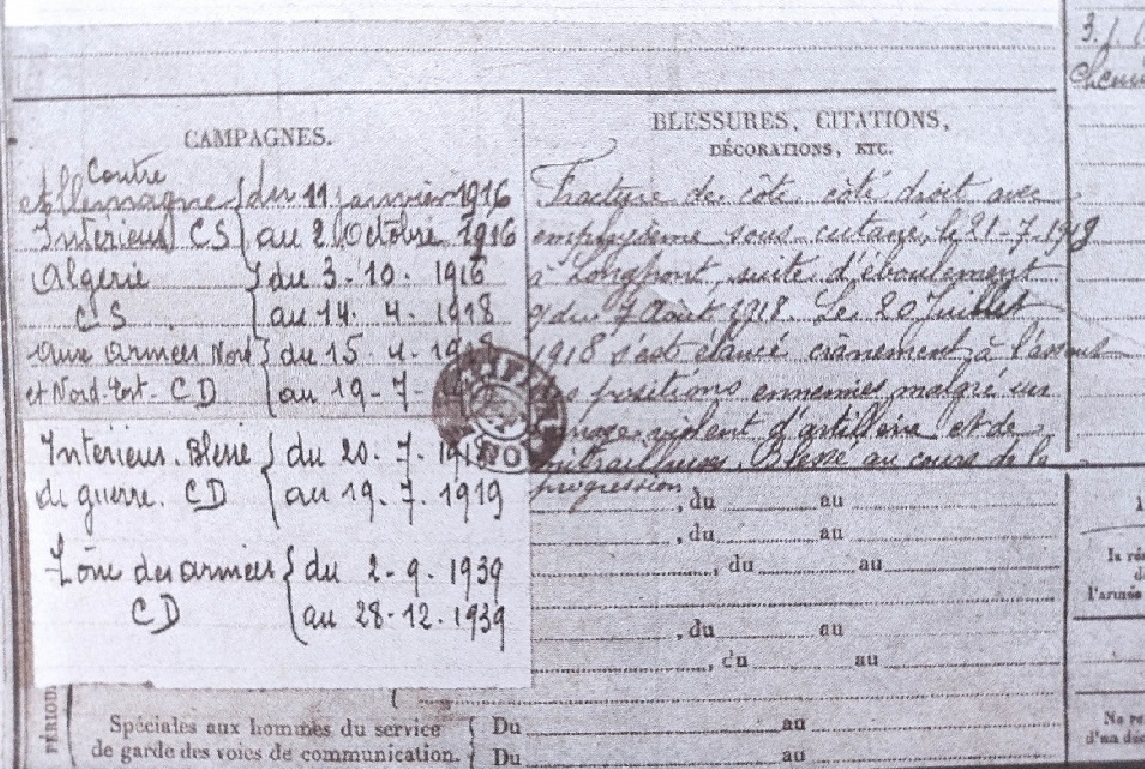 3. j
Chemin
CAMPAGNES.
Contre
Allemagne { du 11 janvier 1916
Intérieur CS { au 2 Octobre 1916
Algérie } du 3-10-1916
CS { au 14.4.1918
aux armées Nord } du 15.4.1918
et Nord-Est. CD { au 19-7-
Intérieur. Blessé { du 20.7.1918
de guerre. CD { au 19.7.1919
Zône des armées { du 2-9.1939
CD { au 28-12.1939
BLESSURES, CITATIONS,
DÉCORATIONS, ETC.
Fracture de côte côté droit avec
emphysème sous-cutané, le 21-7-1918
à Longpont, suite d'éboulement
du 7 Août 1918. Le 20 Juillet
1918 s'est élancé crânement à l'assaut
des positions ennemies malgré un
violent d'artillerie et de
mitrailleuses. Blessé au cours de la
progression
, du au
, du au
, du au
, du au
, du au
PÉRIOD
Spéciales aux hommes du service { Du au
de garde des voies de communication. { Du au
l'armée
No
d'un